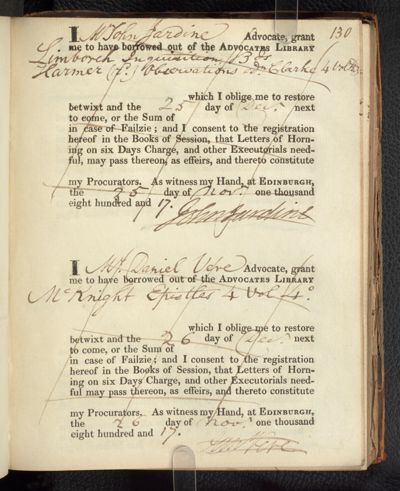 130
I Mr John Jardine Advocate, grant
me to have borrowed out of the ADVOCATES LIBRARY
Limborch Inquisition,
Harmer (T.) Observations Clarke 4 Vol
which I oblige me to restore
betwixt and the 25 day of Decr. next
to come, or the Sum of
in case of Failzie; and I consent to the registration
hereof in the Books of Session, that Letters of Horn-
ing on six Days Charge, and other Executorials need-
ful, may pass thereon, as effeirs, and thereto constitute
my Procurators. As witness my Hand, at EDINBURGH,
the 25 day of Novr. one thousand
eight hundred and 17. John Jardine
I Mr. Daniel Vere Advocate, grant
me to have borrowed out of the ADVOCATES LIBRARY
McKnight Epistles 4 Vol 4o.
which I oblige me to restore
betwixt and the 26 day of Decr. next
to come, or the Sum of
in case of Failzie; and I consent to the registration
hereof in the Books of Session, that Letters of Horn-
ing on six Days Charge, and other Executorials need-
ful may pass thereon, as effeirs, and thereto constitute
my Procurators. As witness my Hand, at EDINBURGH,
the 26 day of Novr. one thousand
eight hundred and 17.